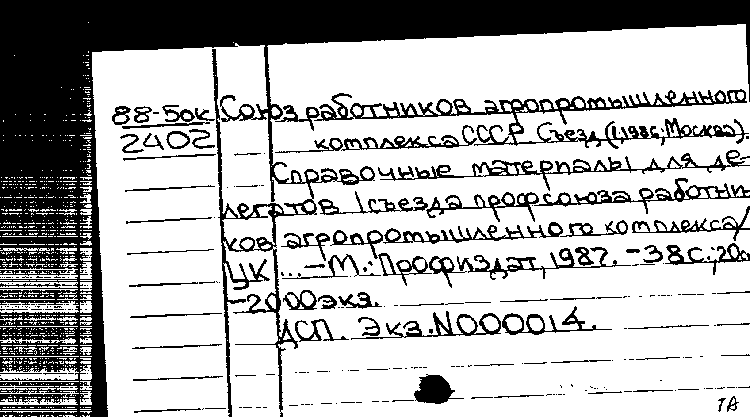 88-5ок Союз работников агропромышленного
2402 комплекса СССР. Съезд (I, 1986; Москва).
Справочные материалы для де-
легатов I съезда профсоюза работни-
ков агропромышленного комплекса/
ЦК ... -М.: Профиздат, 1987. -38с.; 20с
-2000экз.
ДСП. Экз.N000014.
TA